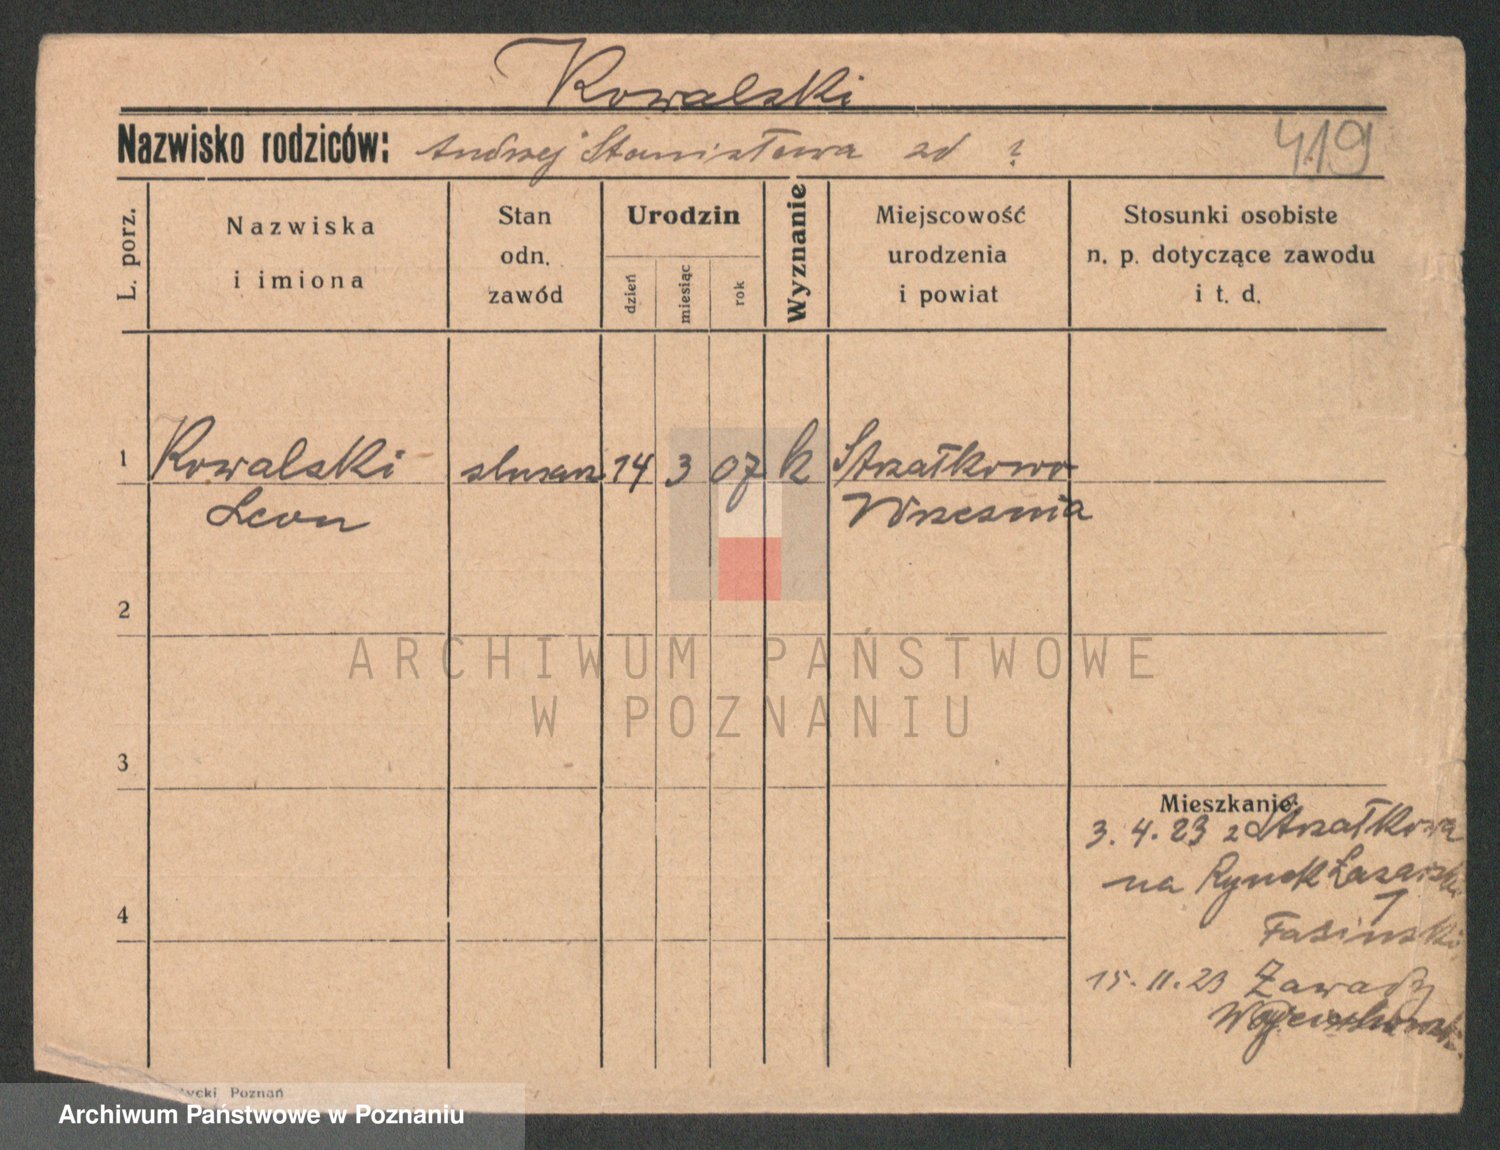 Kowalski
Nazwisko rodziców: Andrzej Stanisława zd ?
419
L. porz.
Nazwiska
i imiona
Stan
odn.
zawód
Urodzin
dzień
miesiąc
rok
Wyznanie
Miejscowość
urodzenia
i powiat
Stosunki osobiste
n. p. dotyczące zawodu
i t. d.
1 Kowalski 14 3 07 k Strzałkowo
Leon Wrzesnia
2
ARCHIWUM PAŃSTWOWE
W POZNANIU
3
Mieszkanie:
3. 4. 23 z Strzałkowa
na Rynek Łazarski
4
15. 11. 23 Zawady
ycki Poznań
Archiwum Państwowe w Poznaniu